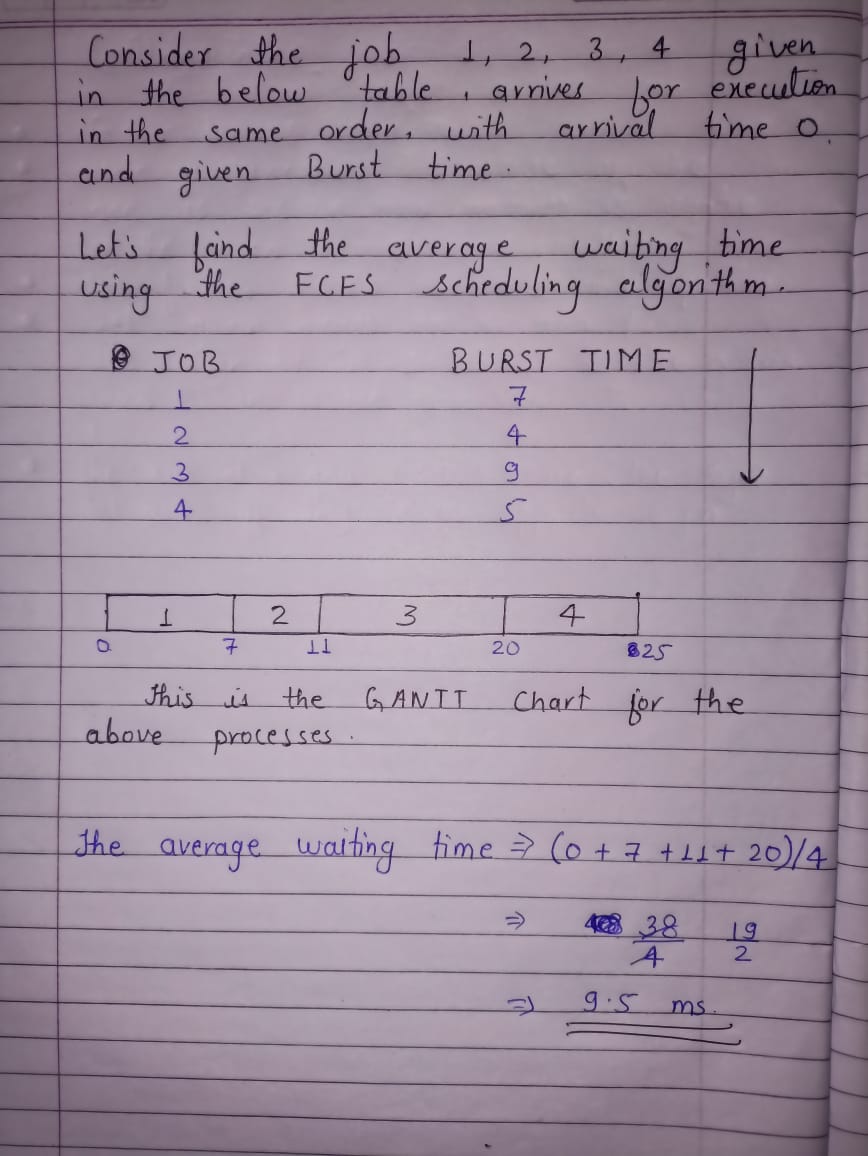 Consider the job 1, 2, 3, 4 given
in the below table, arrives for execution
in the same order, with arrival time 0,
and given Burst time.
Let's find the average waiting time
using the FCFS scheduling algorithm.
JOB BURST TIME
1 7
2 4
3 9
4 5
1 2 3 4
0 7 11 20 25
This is the GANTT Chart for the
above processes.
The average waiting time ⇒ (0 + 7 + 11 + 20)/4
⇒ 38/4 19/2
⇒ 9.5 ms.